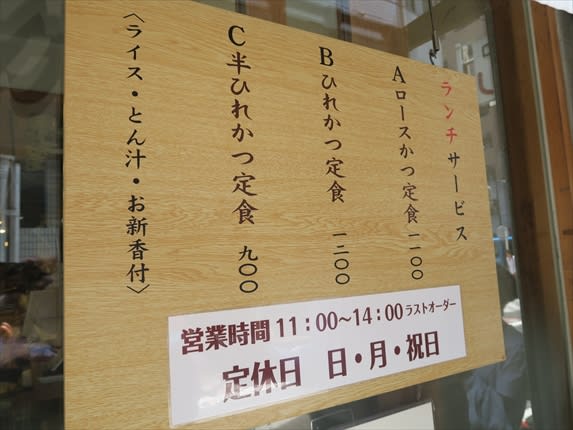 ランチサービス
Aロースかつ定食 一一〇〇
Bひれかつ定食 一二〇〇
C半ひれかつ定食 九〇〇
〈ライス・とん汁・お新香付〉
営業時間 11：00～14：00ラストオーダー
定休日 日・月・祝日